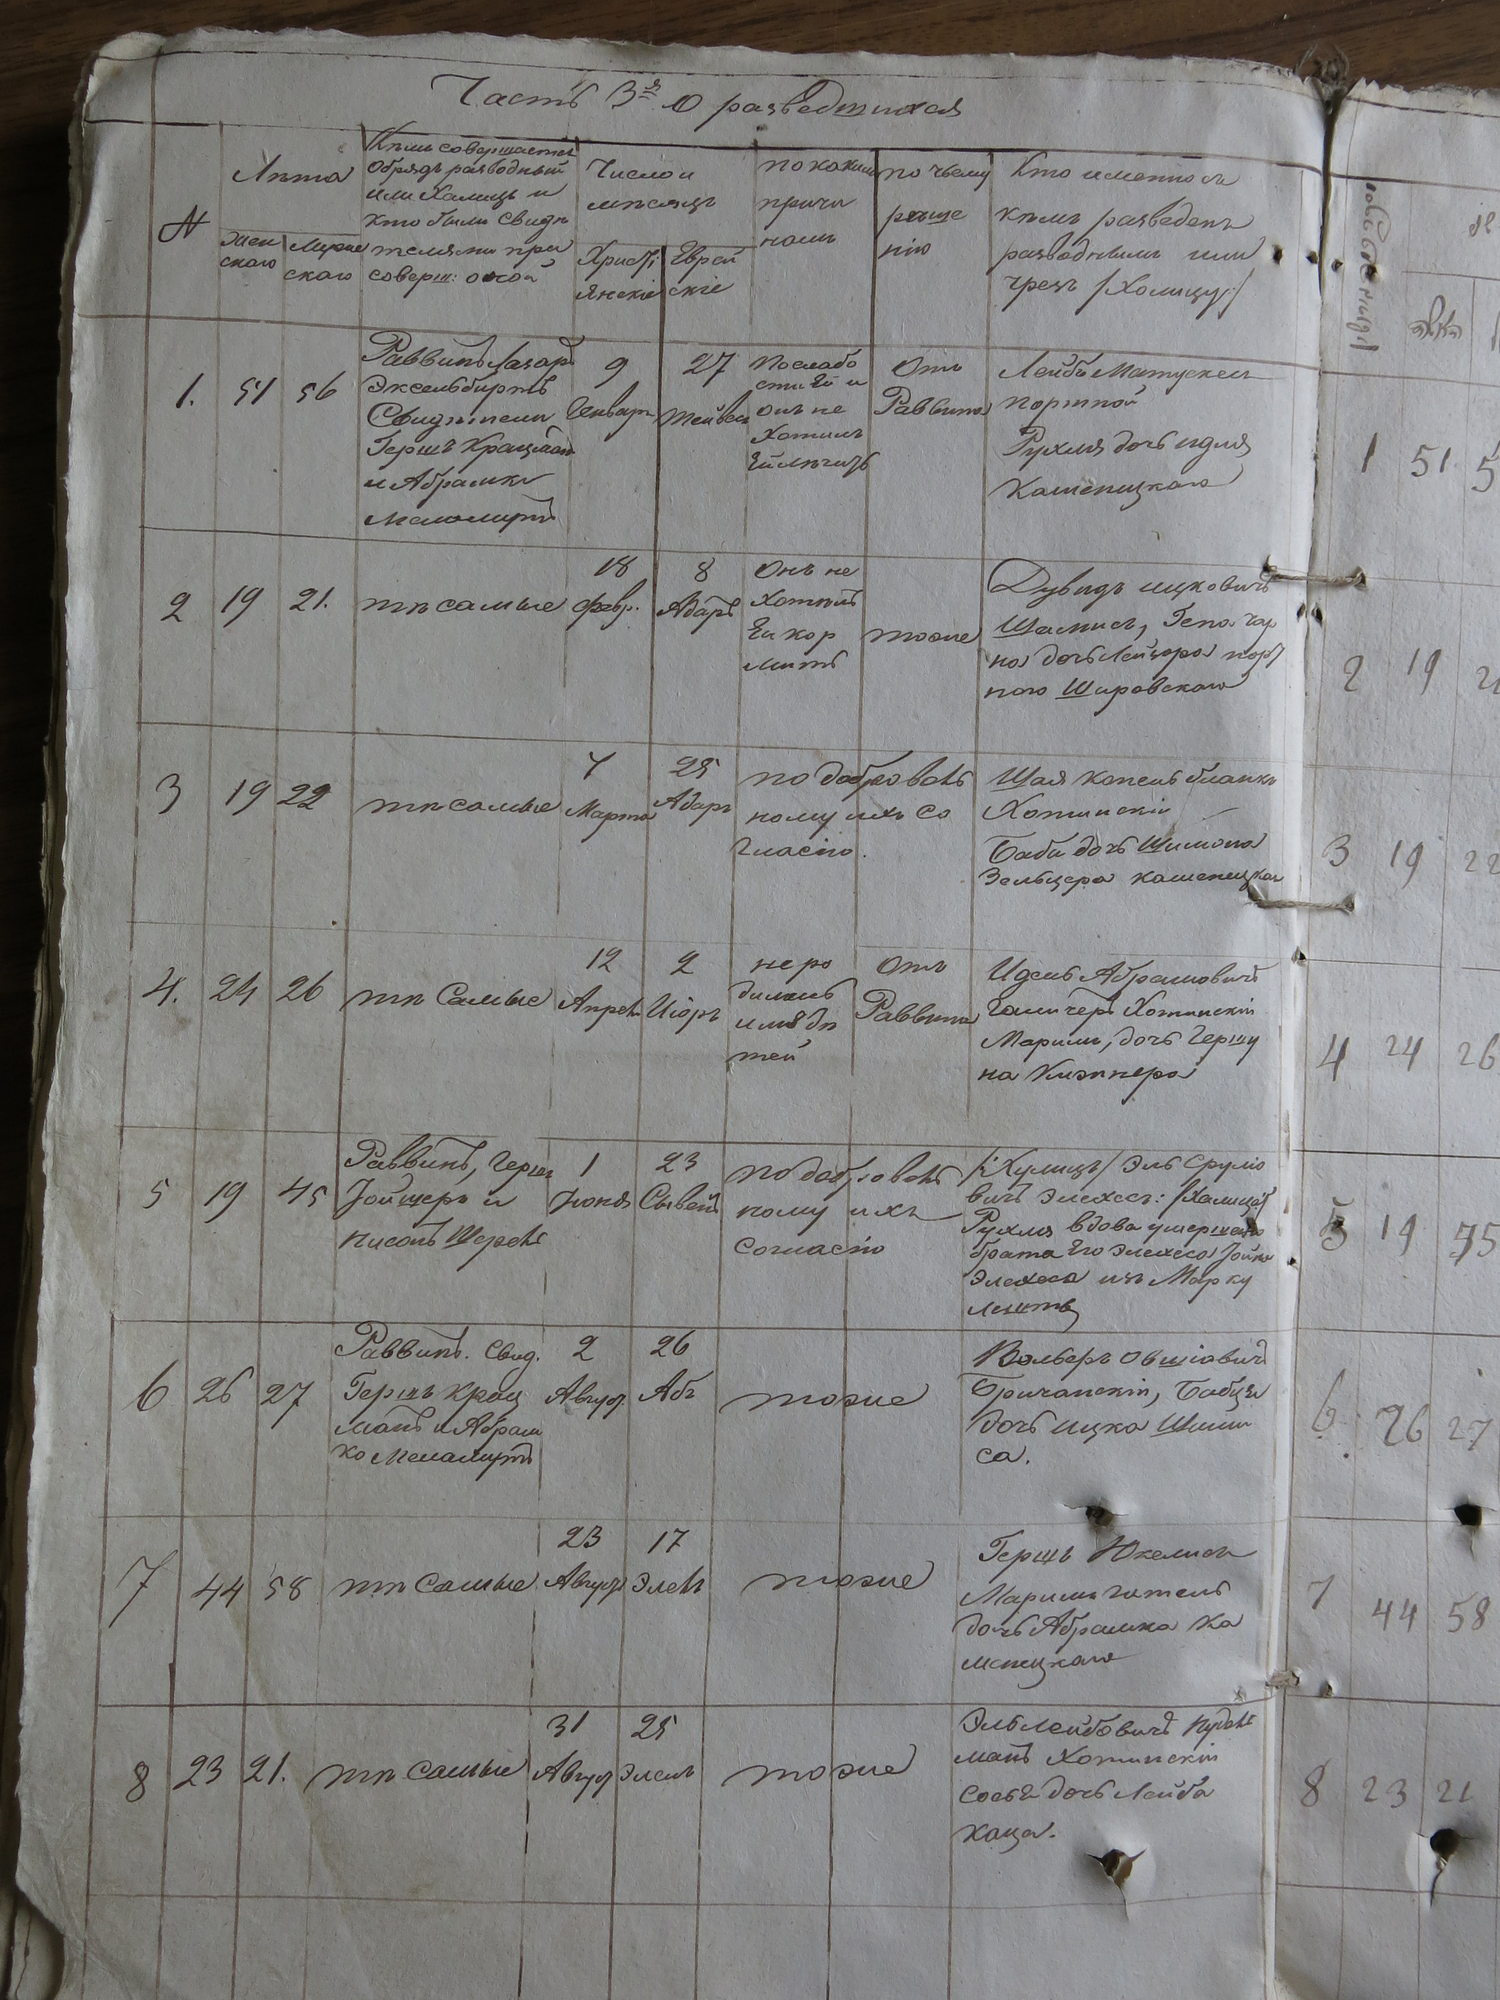 Часть 3я О разведшихся
№
Лѣта
Жен
скаго
Муже
скаго
Кѣмъ совершаетъ
обрядъ разводный
или Халицъ и
кто были Свидѣ
телями при
соверш: оной
Число и
мѣсяцъ
Христі
янскіе
Еврей
скіе
по какимъ
причи
намъ
по чьему
рѣше
нію
Кто именно съ
кѣмъ разведенъ
разводнымъ или
чрезъ /Халицу/
1.
51
56
Раввинъ Лазарь
Эксельбиртъ
Свидѣтели
Гершъ Крацманъ
и Абрамко
Меламутъ
9
Генваря
27
Тейвесъ
По слабо
сти Ей и
онъ не
Хотилъ
Ей лѣчить
Отъ
Раввина
Лейбъ
портной
Рухля дочь Идля
Каменицкаго
2
19
21.
тѣ самые
18
февр.
8
Адаръ
Онъ не
Хотитъ
Ей кор
мить
тоже
Дувидъ Ицковичъ
Шамисъ, Гепа Чар
на дочь Лейзора порт
ного Шаровскаго
3
19
22
тѣ самые
7
Марта
25
Адаръ
по добровол
ному ихъ со
гласію.
Шая Копель бланкъ
Хотинскій
Баба дочь Шимона
Зельцера Каменицка
4.
24
26
тѣ Самые
12
Апрѣл
2
Иіоръ
не ро
дились
имъ дѣ
тей
Отъ
Раввина
Идель Абрамовичъ
Хотинскій
Маримъ, дочь Герш
на Клэпнера
5
19
45
Раввинъ, Гершъ
Іойщеръ и
Нисонъ
1
Іюня
23
Сывенъ
по добровол
ному ихъ
согласію
/:Хулицъ/ Эль Срулю
вичъ Элехесъ: /Халицой/
Рухля вдова умершаго
брата Его Элехеса Іойна
Элехеса изъ Марку
лештъ
6
26
27
Раввинъ. Свид.
Гершъ Крац
манъ и Абрам
ко Меламутъ
2
Август.
26
Абъ
тоже
Вольберъ Овшіовичъ
Бричанскій, Бабця
дочь Ицка Шими
са.
7
44
58
тѣ Самые
23
Август
17
Элель
тоже
Гершъ Юкелисъ
Маримъ Гитель
дочь Абрамка Ка
меницкаго
8
23
21.
тѣ самые
31
Август
25
Элель
тоже
Эль Лейбовичъ Нудель
манъ Хотинскій
Сосья дочь Лейба
Каца.
1 51
2 19
3 19 22
4 24 26
5 19 45
6 26 27
7 44 58
8 23 21